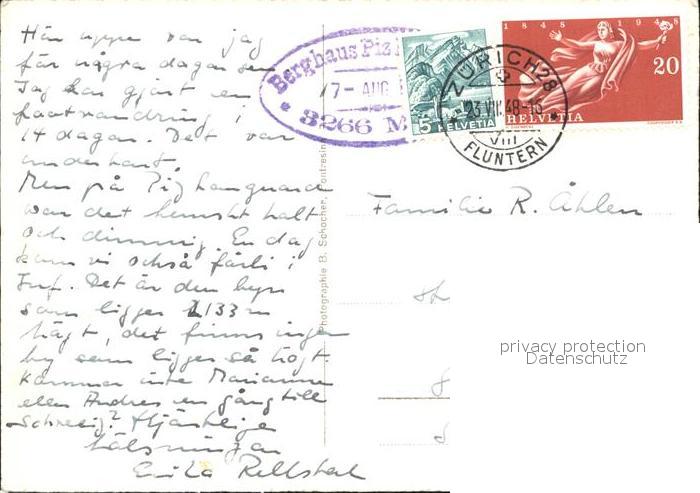 Här uppe var jag
för några dagar sen
Jag har gjort en
fotvandring i
14 dagar. Det var
underbart.
Men på Piz Languard
var det hemskt kallt
och dimmig. En dag
kom vi också förbi i
Juf. Det är den byn
som ligger 2133 m
högt, det finns ingen
by som ligger så högt.
Kommer inte Marianne
eller Andres en gång till
Schweiz? Hjärtliga
hälsningar
Berghaus Piz
17 - AUG
3266 M
5
HELVETIA
1848 1948
20
HELVETIA
ZÜRICH 28
23.VIII.48-16
VIII
FLUNTERN
Photographie B. Schocher, Pontresina
Familie R. Åhlen
privacy protection
Datenschutz